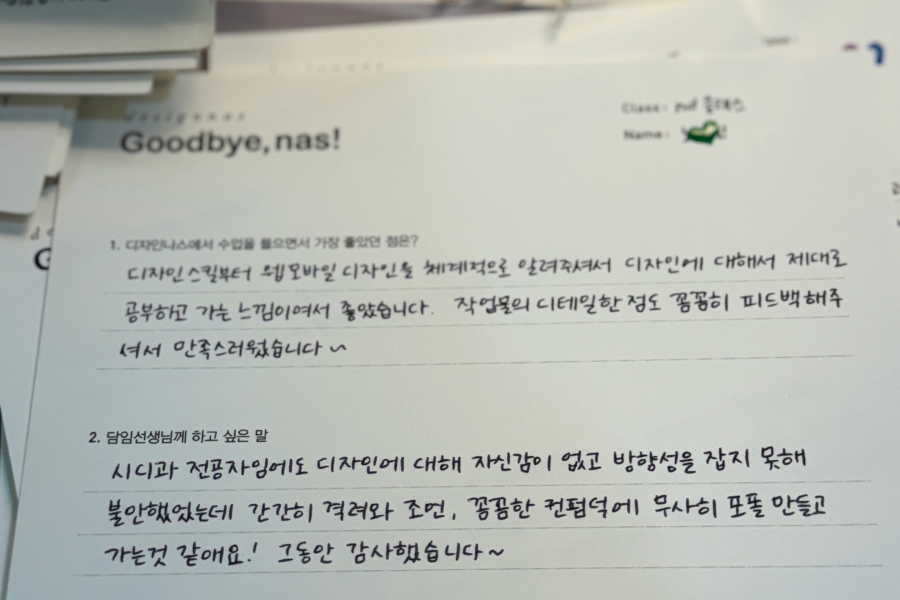 designnas
Goodbye, nas!
Class : 클래스
Name :
1. 디자인나스에서 수업을 들으면서 가장 좋았던 점은?
디자인스킬부터 웹모바일 디자인을 체계적으로 알려주셔서 디자인에 대해서 제대로
공부하고 가는 느낌이여서 좋았습니다. 작업물의 디테일한점도 꼼꼼히 피드백해주
셔서 만족스러웠습니다~
2. 담임선생님께 하고 싶은 말
시디과 전공자임에도 디자인에 대해 자신감이 없고 방향성을 잡지 못해
불안했었는데 간간히 격려와 조언, 꼼꼼한 컨펌덕에 무사히 포폴 만들고
가는것 같애요! 그동안 감사했습니다~